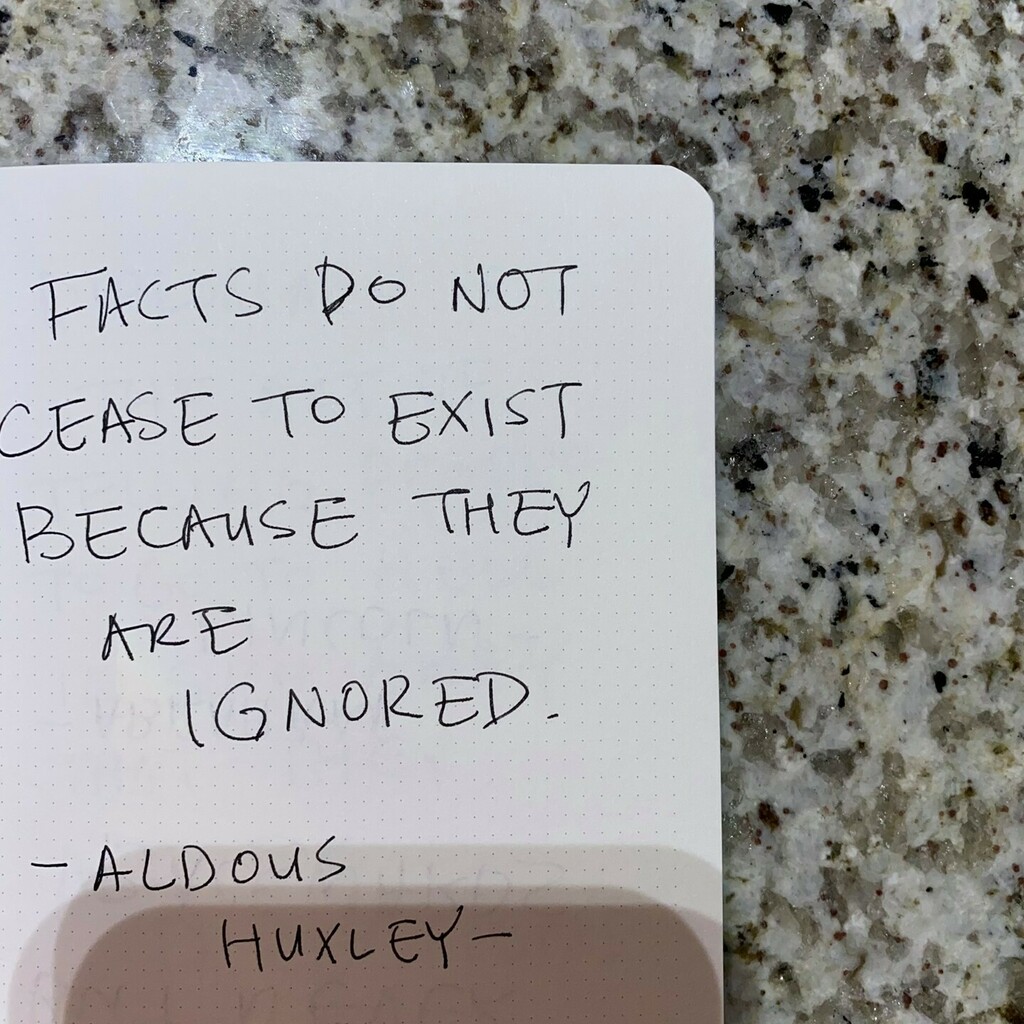 FACTS DO NOT
CEASE TO EXIST
BECAUSE THEY
ARE
IGNORED.
- ALDOUS
HUXLEY -